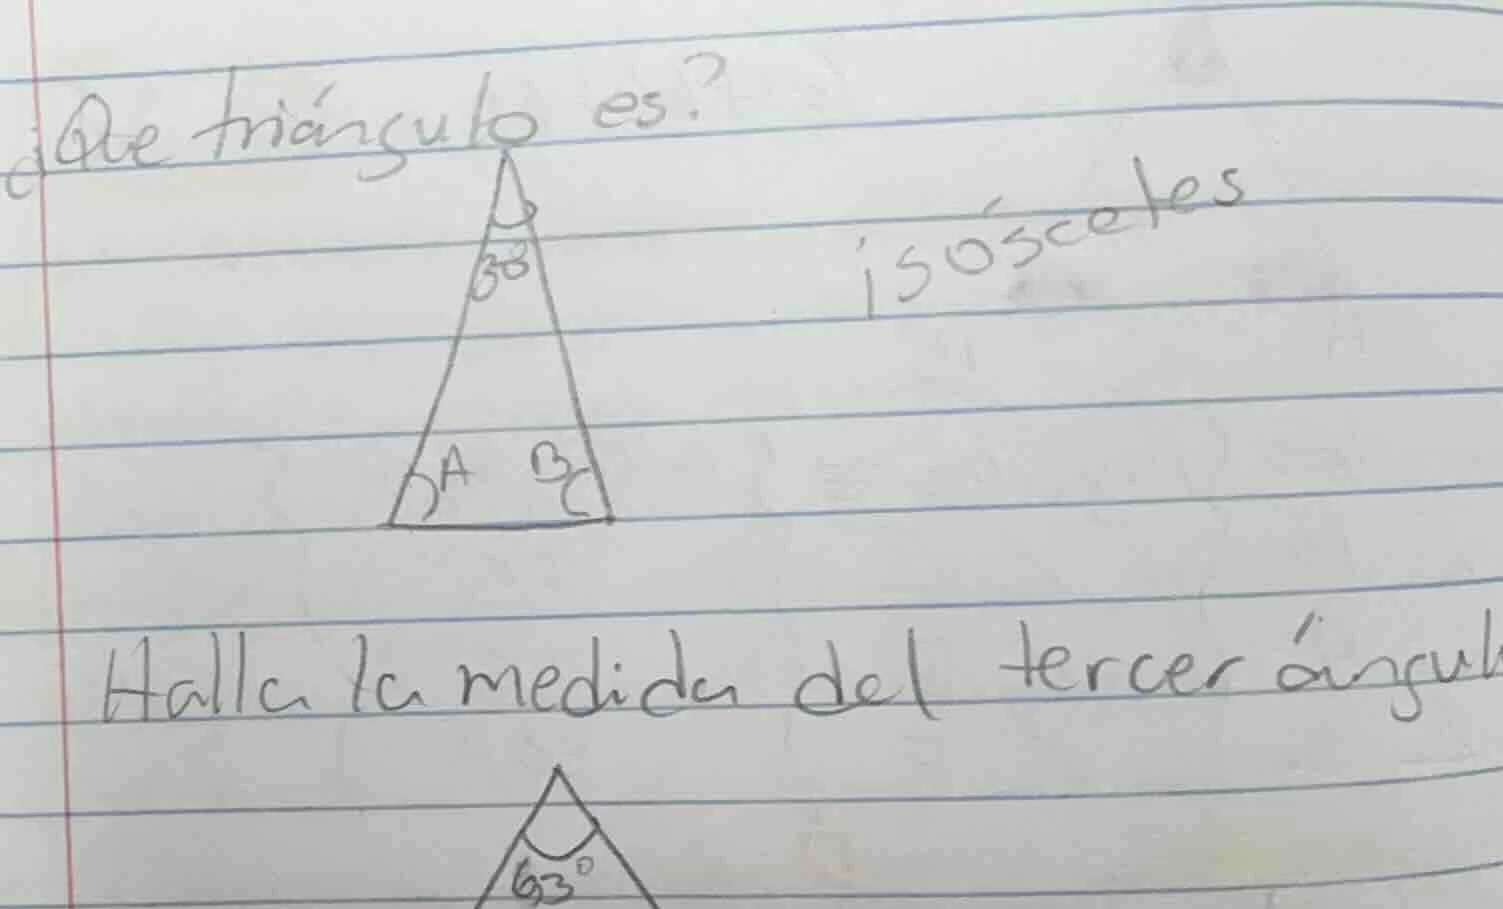 ¿Que triángulo es?
isósceles
A B
Halla la medida del tercer ángul
63°